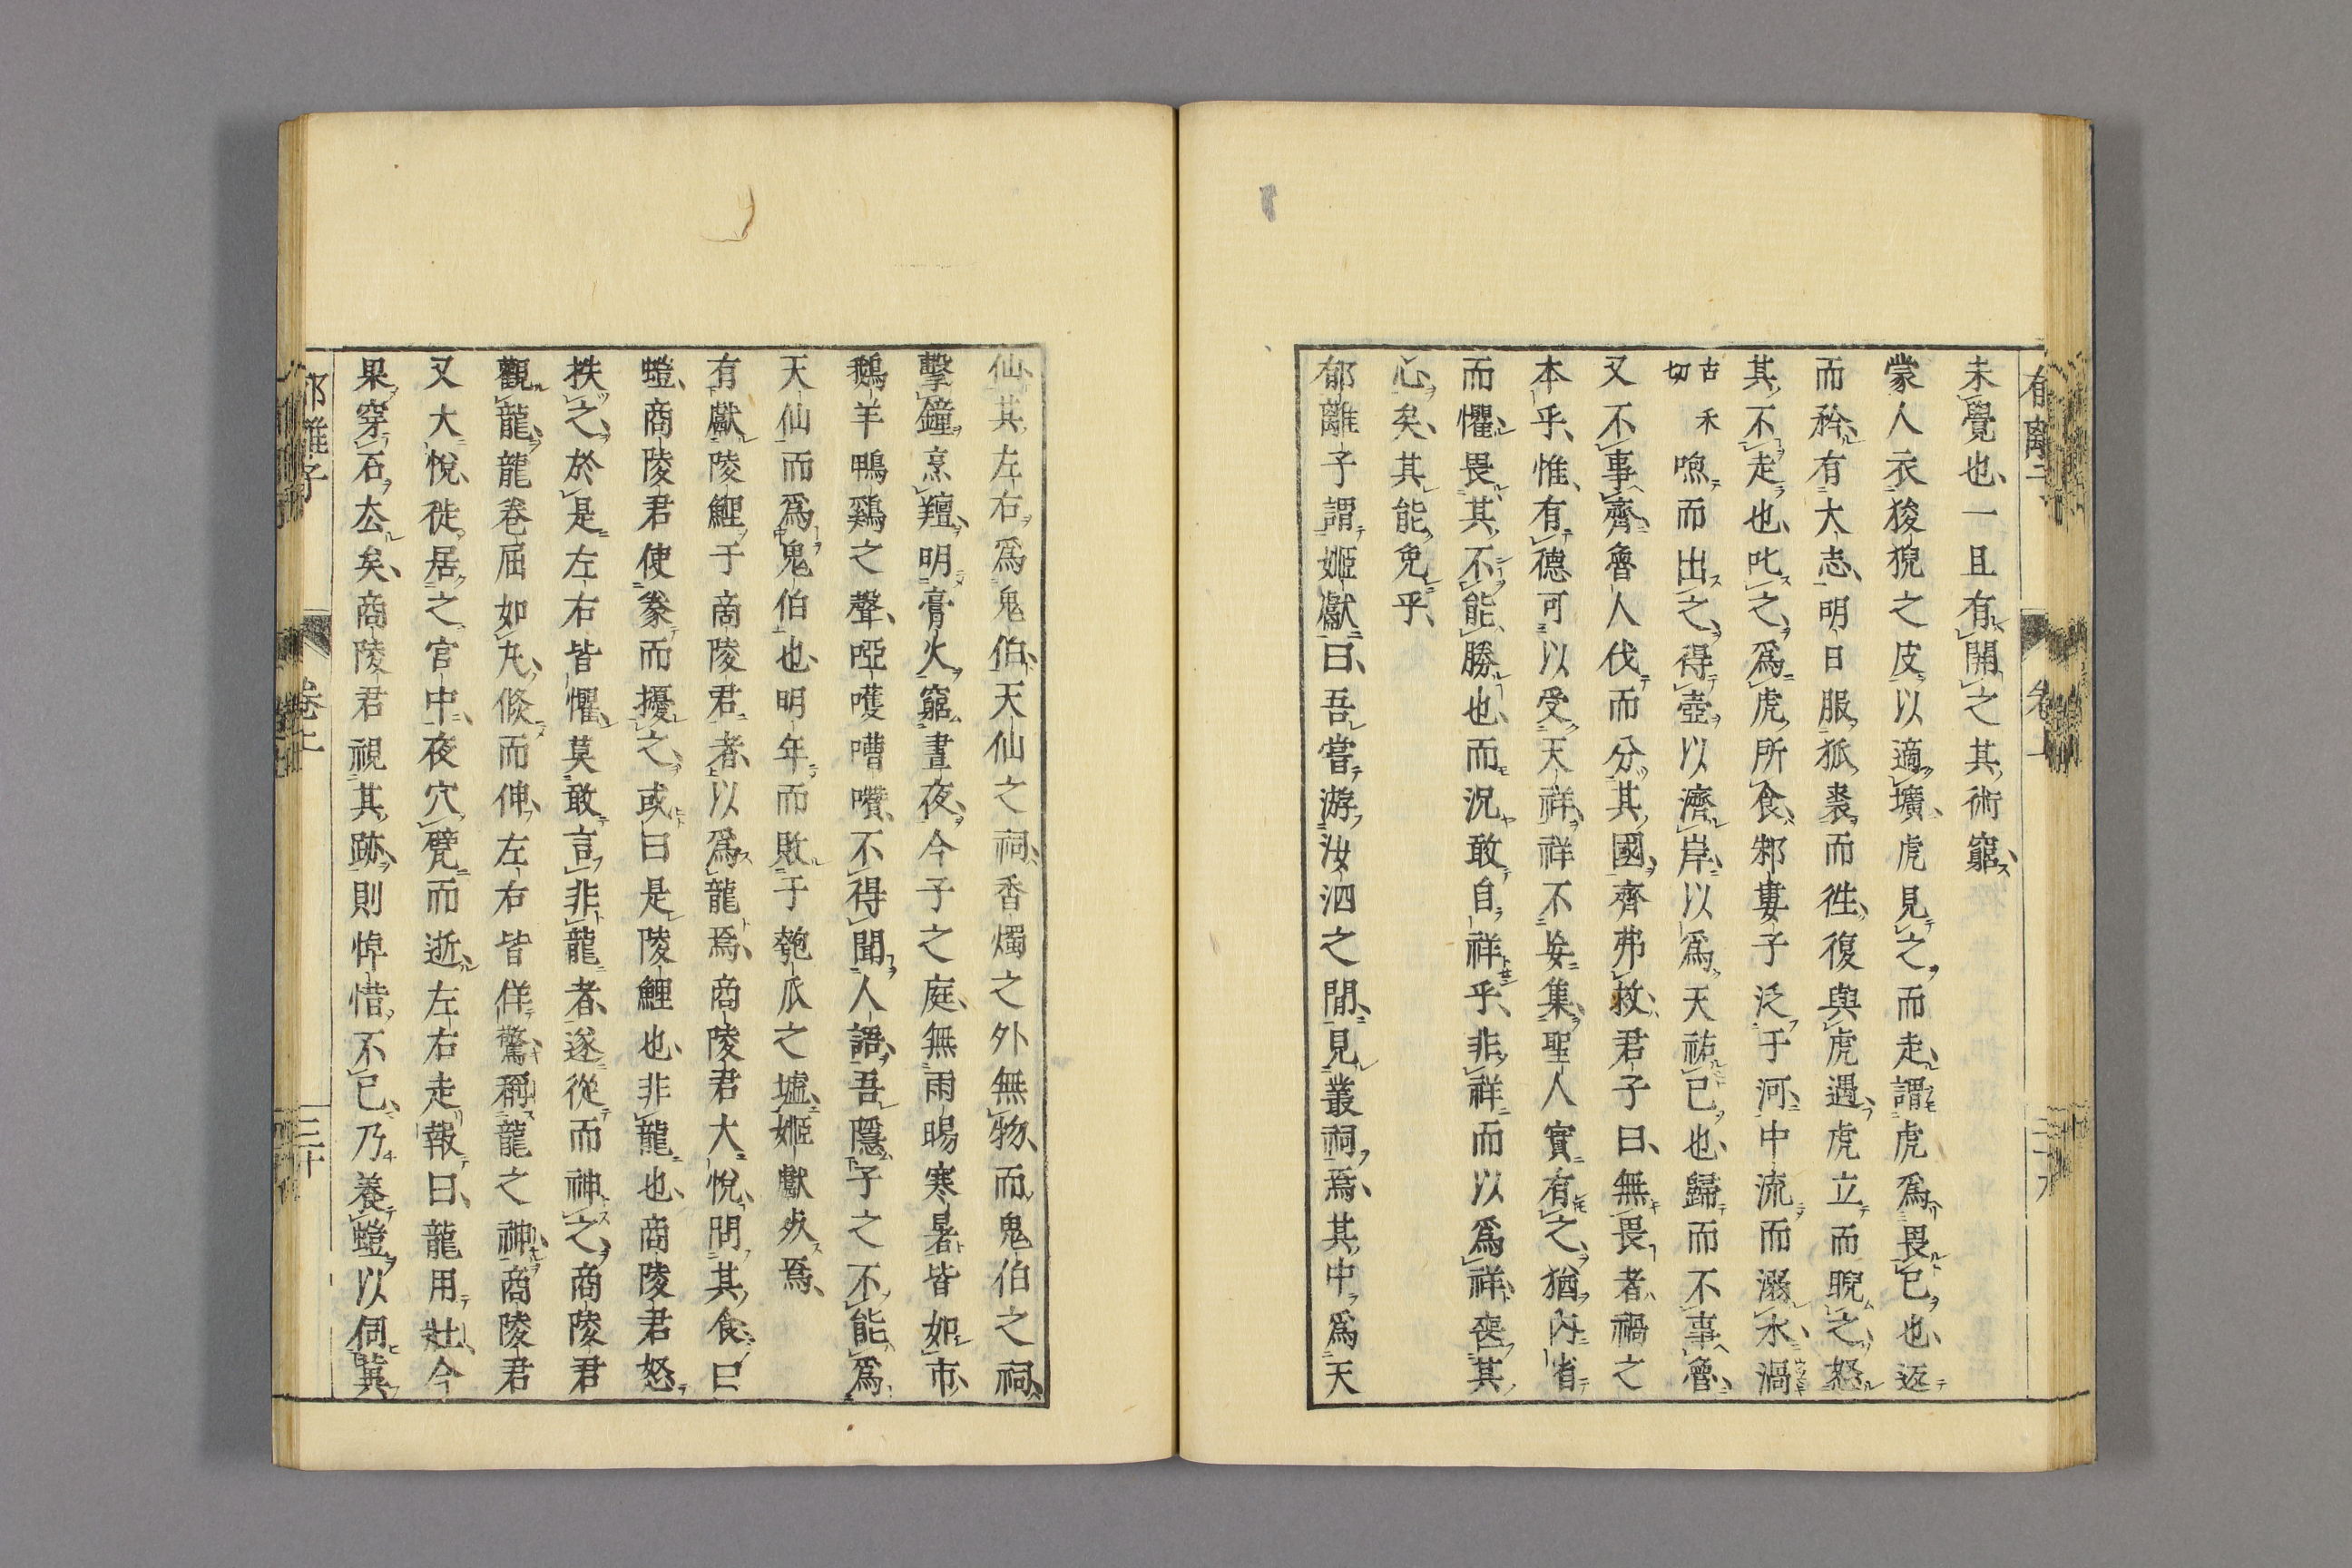 未覺也、一且有開之其術窮、
蒙人衣狻猊之皮以適壙虎見之、而走、謂虎爲畏已也、返
而矜、有大志、明日服狐裘而徃、復與虎遇、虎立而睨之、怒
其不走也、叱之、爲虎所食、邾婁子泛于河、中流而溺、水渦
古禾切
喰而出之、得壺以濟岸、以爲天祐已也、歸而不事魯、
又不事齊、魯人伐而分其國、齊弗救、君子曰、無畏者禍之
本乎、惟有德可以受天祥、祥不妄集、聖人實有之、猶內省
而懼、畏其不能勝也、而況敢自祥乎、非祥而以爲祥、喪其
心矣、其能免乎、
郁離子謂姬獻曰、吾嘗游汝泗之間、見叢祠焉、其中爲天
仙其左右爲鬼伯、天仙之祠、香燭之外無物、而鬼伯之祠、
擊鐘烹羶、明膏火、窮晝夜、今子之庭、無雨暘寒暑皆如市、
鵝羊鴨鷄之聲、啞嚄嘈囋、不得聞人語、吾隱子之不能爲
天仙而爲鬼伯也、明年而敗于匏瓜之墟、姬獻死焉、
有獻陵鯉于商陵君者、以爲龍焉、商陵君大悅、問其食曰
螘、商陵君使豢而擾之、或曰是陵鯉也、非龍也、商陵君怒
抶之、於是左右皆懼、莫敢言非龍者、遂從而神之、商陵君
觀龍、龍卷屈如丸、倏而伸、左右皆佯驚、稱龍之神、商陵君
又大悅、徙居之宮中、夜穴甓而逝、左右走報曰、龍用壯今
果穿石厺矣、商陵君視其跡、則悼惜不已、乃養螘以伺冀
郁離子
卷上
三十